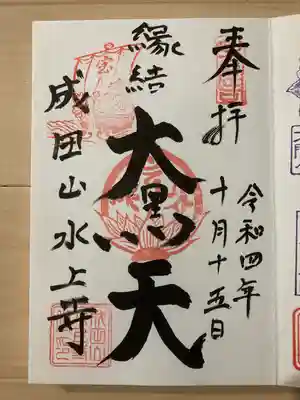 奉拝
令和四年
十月十五日
縁結
大黒天
成田山水上寺